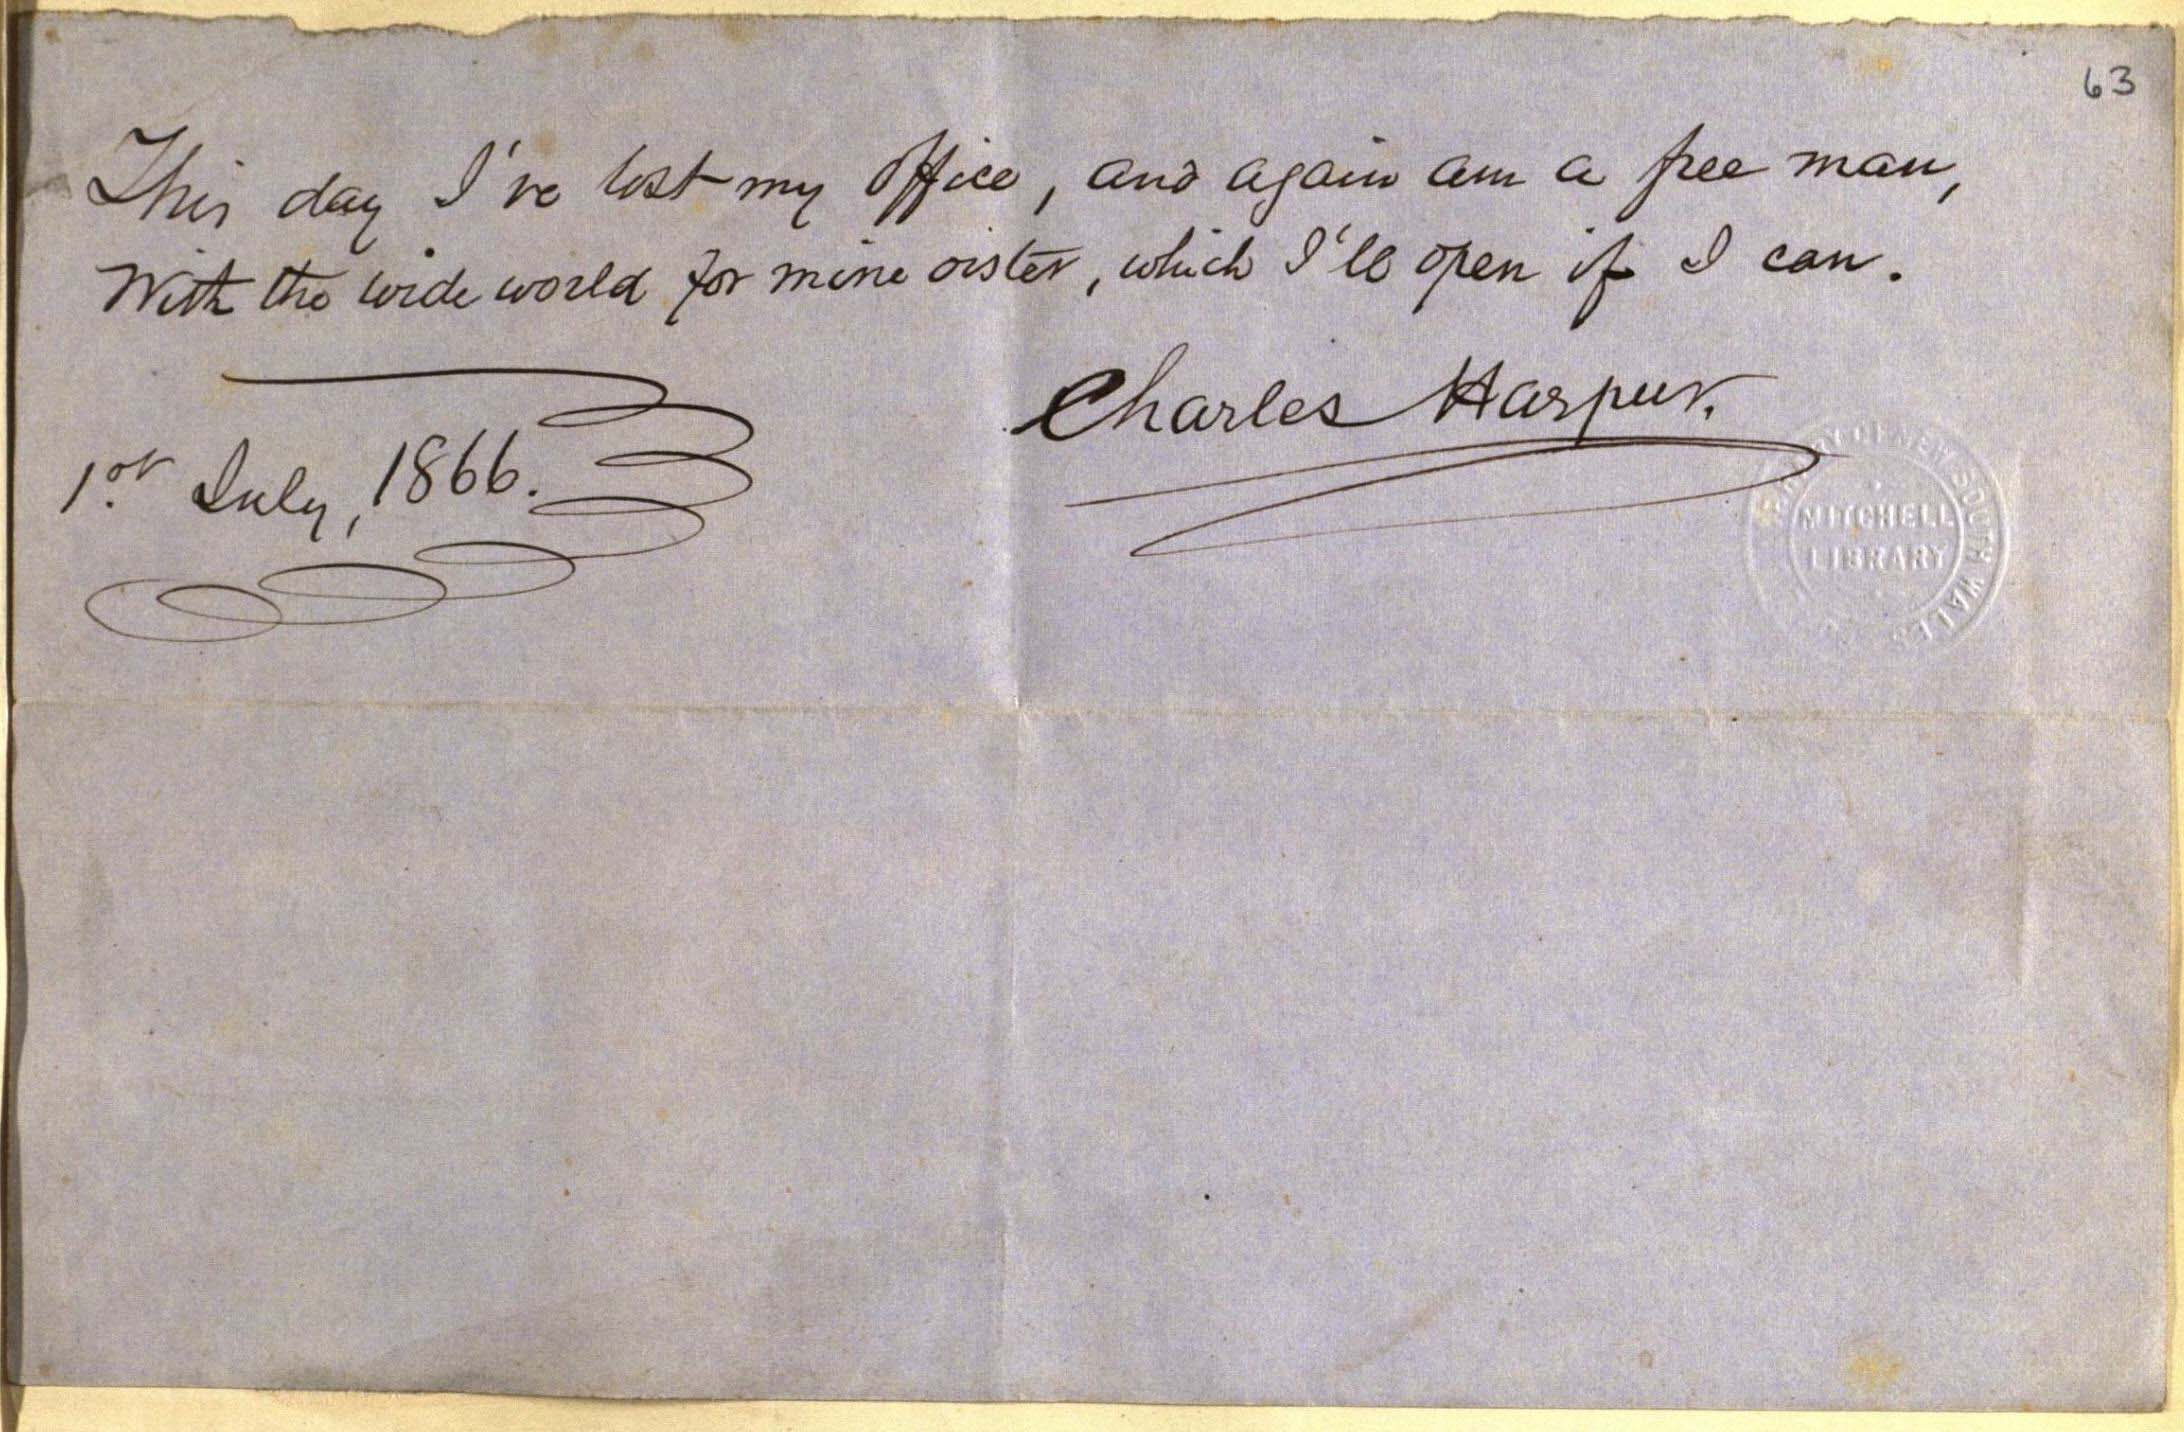 63
This day I've lost my Office, and again am a free man,
With the wide world for mine oister, which I'll open if I can.
Charles Harpur.
1st July, 1866.
LIBRARY OF NEW SOUTH WALES
MITCHELL
LIBRARY